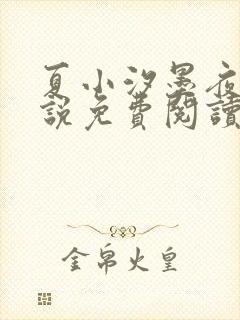 夏小汐墨夜
說免費閱讀
金帛火皇